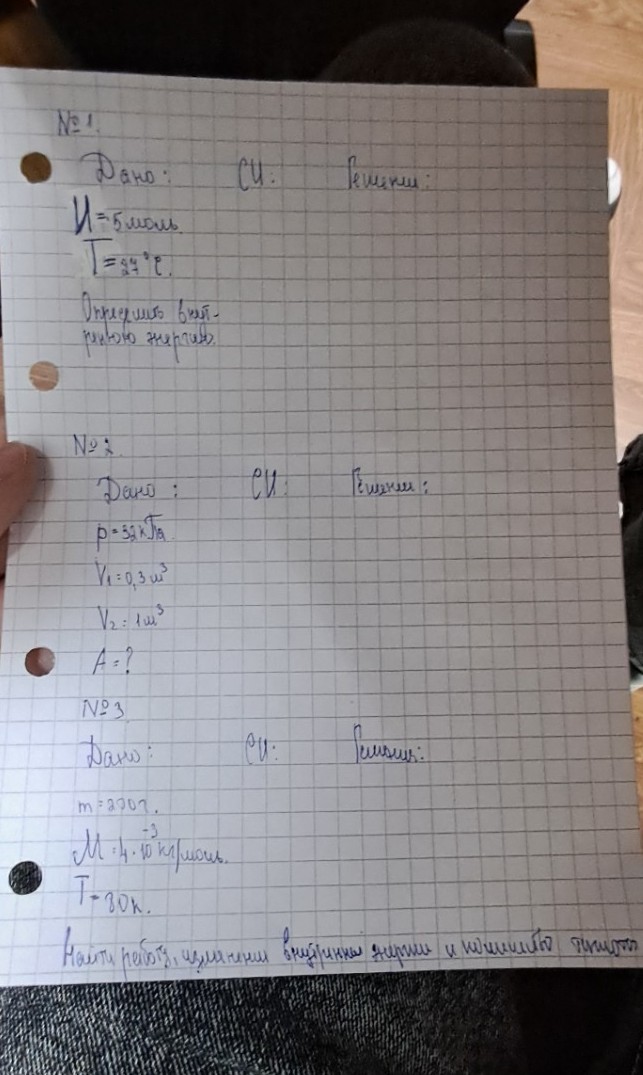 №1.
Дано: СИ: Решение:
И=5моль.
T=27°С.
Определить внут-
реннюю энергию.
№2.
Дано: СИ: Решение:
p=32кПа
V₁=0,3м³
V₂=1м³
A=?
№3
Дано: СИ: Решение:
m=200г.
M=4·10⁻³кг/моль.
T=80к.
Найти работу, изменение внутренней энергии и количество теплоты